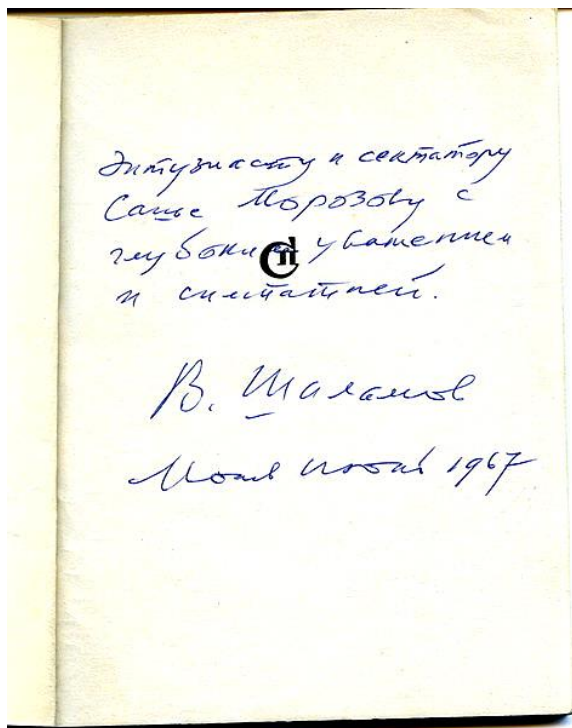 Энтузиасту и сектатору
Саше Морозову с
глубоким уважением
и симпатией.
СП
В. Шаламов
Москва 1967